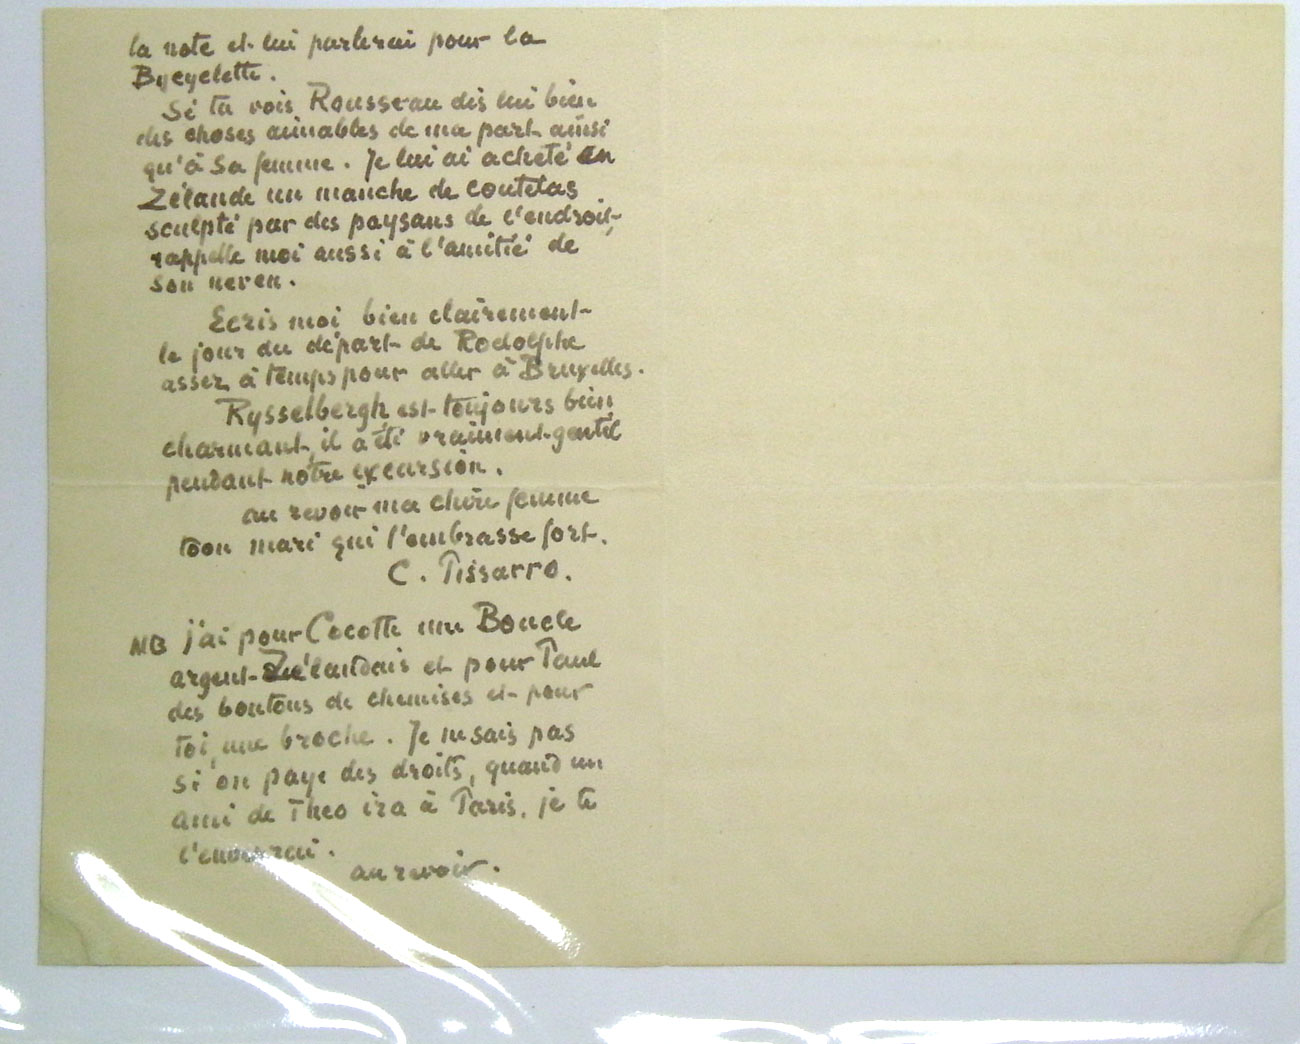 la note et lui parlerai pour la
Bycyclette.
Si tu vois Rousseau dis lui bien
des choses aimables de ma part ainsi
qu'à sa femme. Je lui ai acheté en
Zélande un manche de coutelas
sculpté par des paysans de l'endroit,
rappelle moi aussi à l'amitié de
son neveu.
Ecris moi bien clairement
le jour du départ de Rodolphe
assez à temps pour aller à Bruxelles.
Rysselbergh est toujours bien
charmant, il a été vraiment gentil
pendant notre excursion.
au revoir ma chère femme
ton mari qui t'embrasse fort.
C. Pissarro.
NB j'ai pour Cocotte une Boucle
argent Zélandais et pour Paul
des boutons de chemises et pour
toi, une broche. Je ne sais pas
si on paye des droits, quand un
ami de Theo ira à Paris, je te
l'enverrai.
au revoir.